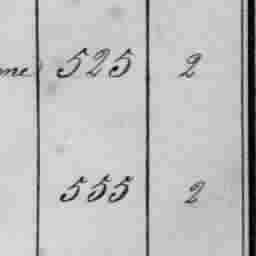 525 2
555 2